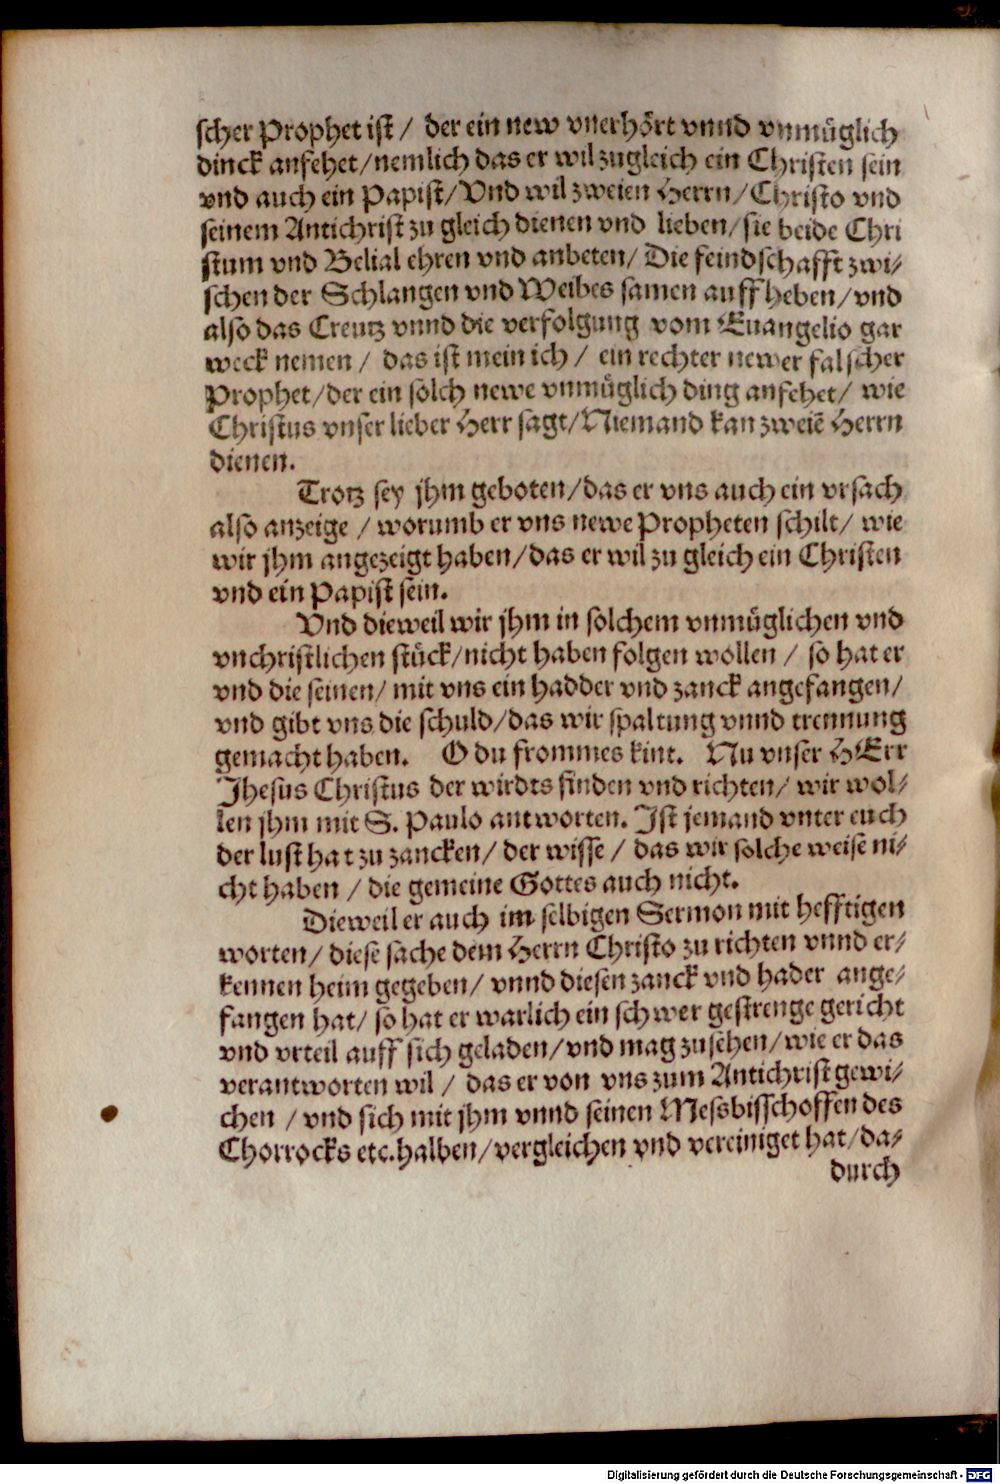 scher Prophet ist / der ein new vnerhört vnnd vnmüglich
dinck anfehet/nemlich das er wil zugleich ein Christen sein
vnd auch ein Papist/Vnd wil zweien Herrn/Christo vnd
seinem Antichrist zu gleich dienen vnd lieben/sie beide Chri
stum vnd Belial ehren vnd anbeten/ Die feindschafft zwi⸗
schen der Schlangen vnd Weibes samen auff heben/vnd
also das Creutz vnnd die verfolgung vom Euangelio gar
weck nemen / das ist mein ich / ein rechter newer falscher
Prophet/der ein solch newe vnmüglich ding anfehet/ wie
Christus vnser lieber Herr sagt/Niemand kan zweiē Herrn
dienen.
Trotz sey jhm geboten/das er vns auch ein vrsach
also anzeige / worumb er vns newe Propheten schilt/ wie
wir jhm angezeigt haben/das er wil zu gleich ein Christen
vnd ein Papist sein.
Vnd dieweil wir jhm in solchem vnmüglichen vnd
vnchristlichen stück/nicht haben folgen wollen / so hat er
vnd die seinen/ mit vns ein hadder vnd zanck angefangen/
vnd gibt vns die schuld/das wir spaltung vnnd trennung
gemacht haben. O du frommes kint. Nu vnser HErr
Jhesus Christus der wirdts finden vnd richten/ wir wol⸗
len jhm mit S. Paulo antworten. Ist jemand vnter euch
der lust hat zu zancken/ der wisse / das wir solche weise ni⸗
cht haben / die gemeine Gottes auch nicht.
Dieweil er auch im selbigen Sermon mit hefftigen
worten/ diese sache dem Herrn Christo zu richten vnnd er⸗
kennen heim gegeben/ vnnd diesen zanck vnd hader ange⸗
fangen hat/ so hat er warlich ein schwer gestrenge gericht
vnd vrteil auff sich geladen/vnd mag zusehen/wie er das
verantworten wil / das er von vns zum Antichrist gewi⸗
chen / vnd sich mit jhm vnnd seinen Messbisschoffen des
Chorrocks etc.halben/vergleichen vnd vereiniget hat/da⸗
durch
Digitalisierung gefördert durch die Deutsche Forschungsgemeinschaft - DFG